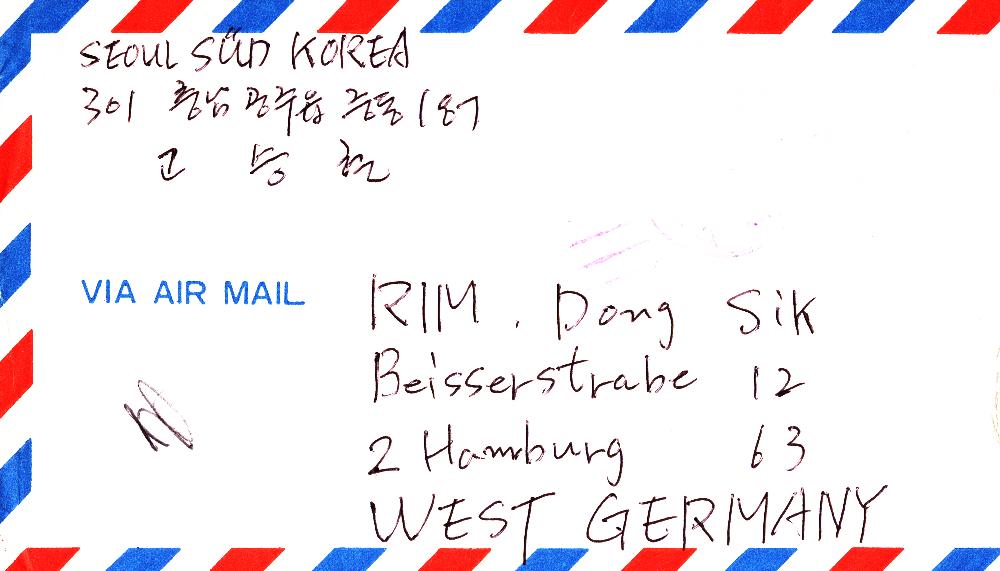 SEOUL SÜD KOREA
301 충남 공주읍 중동 187
고 승 현
VIA AIR MAIL
RIM . Dong Sik
Beisserstrabe 12
2 Hamburg 63
WEST GERMANY